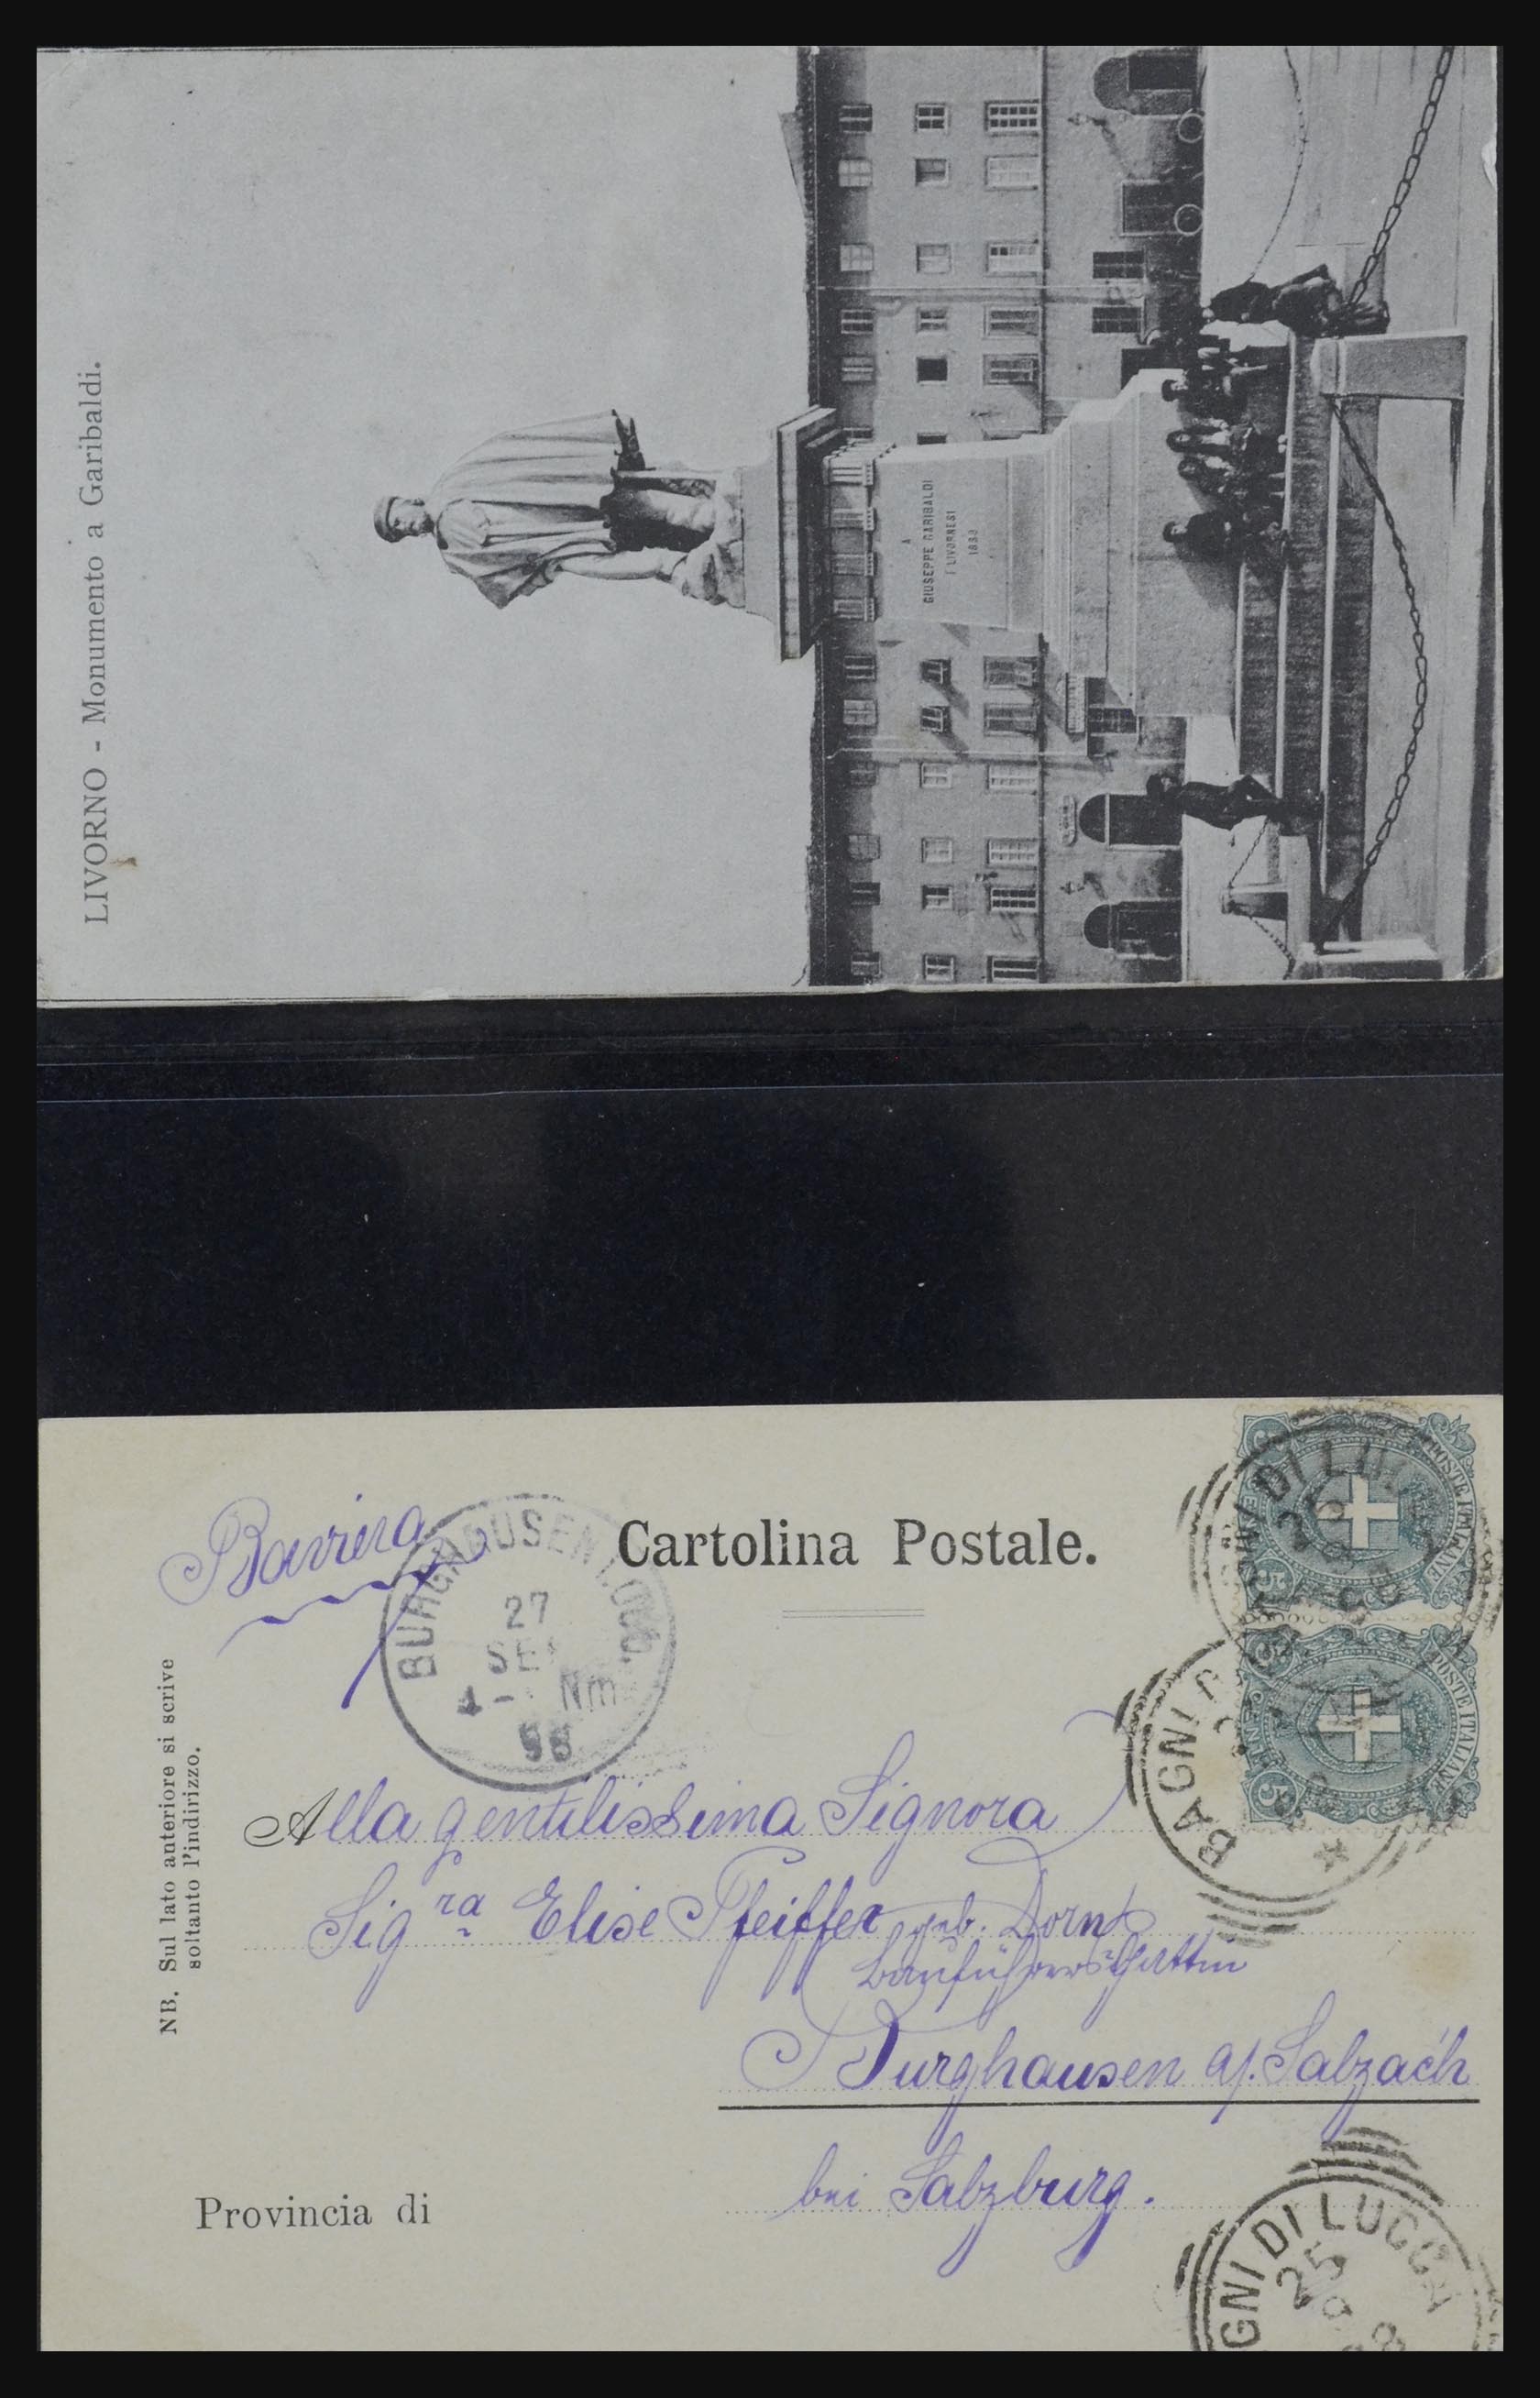 LIVORNO - Monumento a Garibaldi.
A
GIUSEPPE GARIBALDI
I LIVORNESI
1889
Cartolina Postale.
Baviera
BURGHAUSEN
27
SE
4- Nm
98
POSTE ITALIANE
5 CENT 5
POSTE ITALIANE
5 CENT 5
BAGNI DI LU
BAGNI
NB. Sul lato anteriore si scrive
soltanto l'indirizzo.
Alla gentilissima Signora
Sigra Elise Pfeiffer geb. Dorn
Bauführersgattin
Burghausen a/. Salzach
bei Salzburg.
Provincia di
GNI DI LUCCA
25
9
98